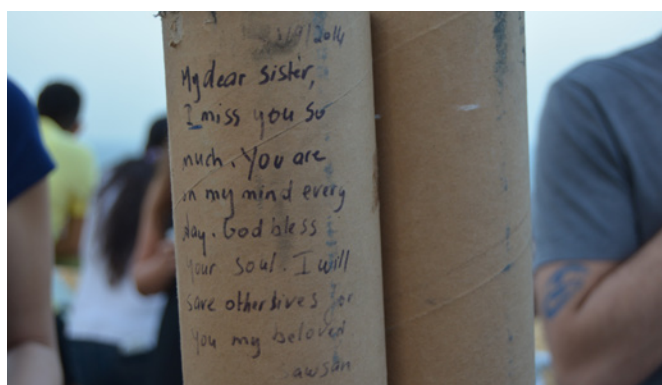 3/9/2014
My dear sister,
I miss you so
much. You are
in my mind every
day. God bless
your soul. I will
save other lives for
you my beloved
awsan